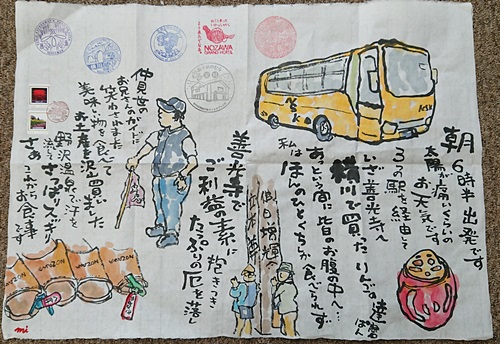 朝
6時半出発です
太陽が痛いくらいの
お天気です
3つの駅を経由して
いざ善光寺へ
横川で買ったりんごの達磨ぱん
あっという間に皆のお腹の中へ…
私はほんのひとくちが食べられず
善光寺で
ご利益の素に抱きつき
たっぷり厄を落し
仲見世の
お兄さんのガイドに
笑わされます
美味い物を食べて
お土産を沢山買いました
野沢温泉で汗を
流してさっぱりスッキリ
さぁ
これからお食事です
NOZAWA
GRAND HOTEL
KSK
NOZAWA
NOZAWA
mi